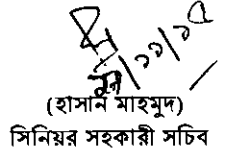 (হাসান মাহমুদ)
সিনিয়র সহকারী সচিব